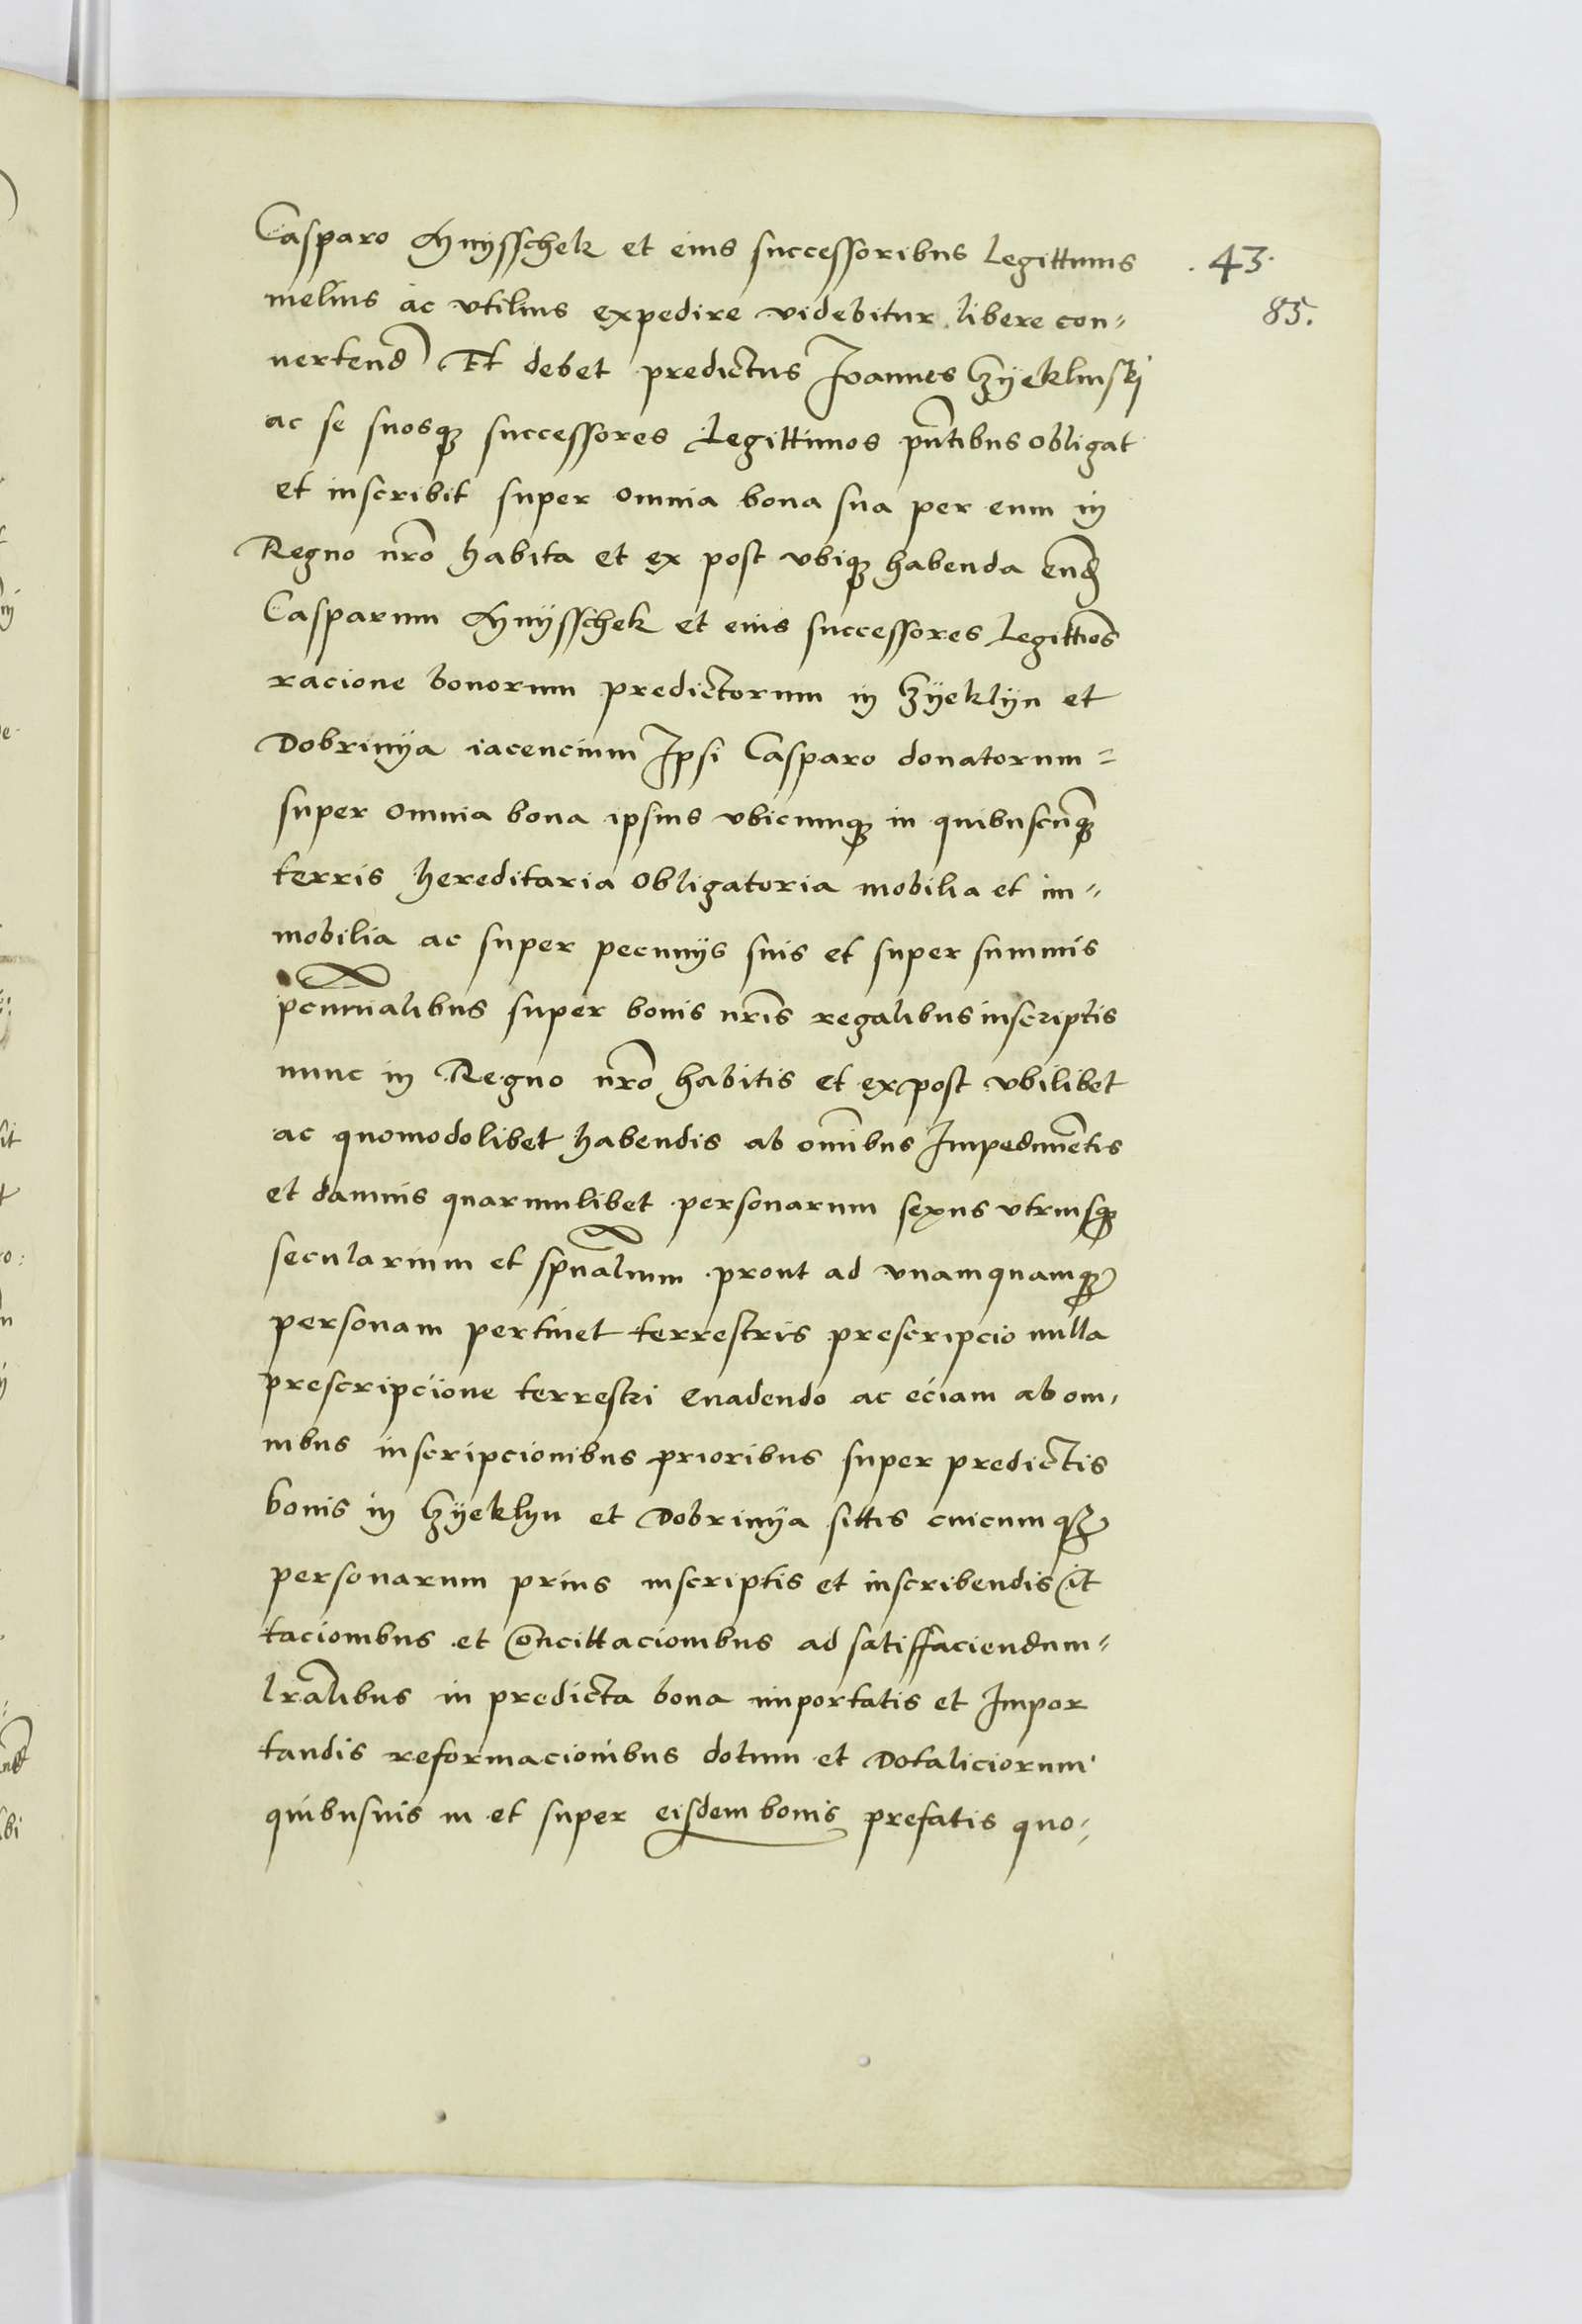 Casparo Hnÿsschek et eius successoribus legittimis
. 43.
melius ac vtilius expedire videbitur libere con=
85.
uertend Et debet predictus Joannes Gzÿeklinskj
ac se suosq successores legittimos pntibus obligat
et inscribit super omnia bona sua per eum in
Regno nro habita et ex post vbiq habenda eund
Casparum Hnÿsschek et eius successores legittios
racione bonorum predictorum in Gzÿeklÿn et
Dobrinÿa iacencium Ipsi Casparo donatorum=
super omnia bona ipsius vbicumq in quibuscuq
terris hereditaria obligatoria mobilia et im=
mobilia ac super pecunijs suis et super summis
pcunialibus super bonis nris regalibus inscriptis
nunc in Regno nro habitis et expost vbilibet
ac quomodolibet habendis ab omibus Impedimetis
et damnis quarumlibet personarum sexus vtriusq
secularium et spualium prout ad vnamquamq
personam pertinet terrestris prescripcio nulla
prescripcione terrestri euadendo ac eciam ab om=
nibus inscripcionibus prioribus super predictis
bonis in Gzÿeklyn et Dobrinÿa sittis cuicumqz
personarum prius inscriptis et inscribendis Cit
tacionibus et Concittacionibus ad satiffaciendum=
lralibus in predicta bona importatis et Impor
tandis reformacionibus dotum et Dotaliciorum
quibusuis in et super eisdem bonis prefatis quo=